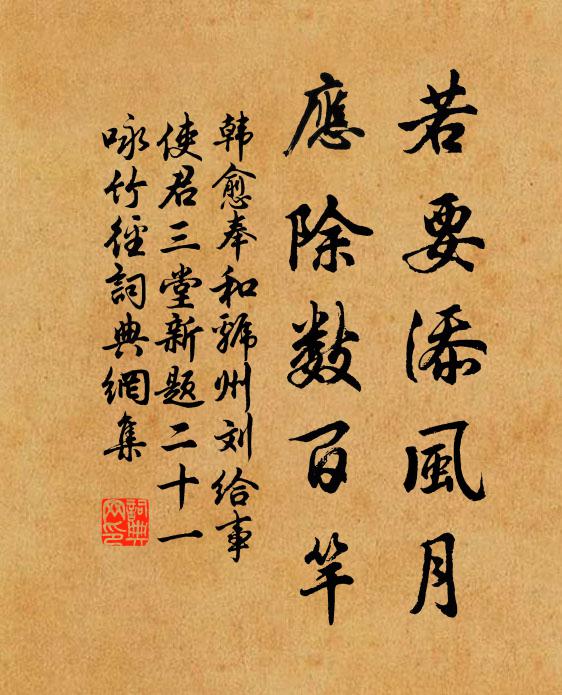 若要添風月
應除数百竿
韩愈奉和虢州刘给事
使君三堂新题二十一
咏竹徑詞典網集
詞典网印